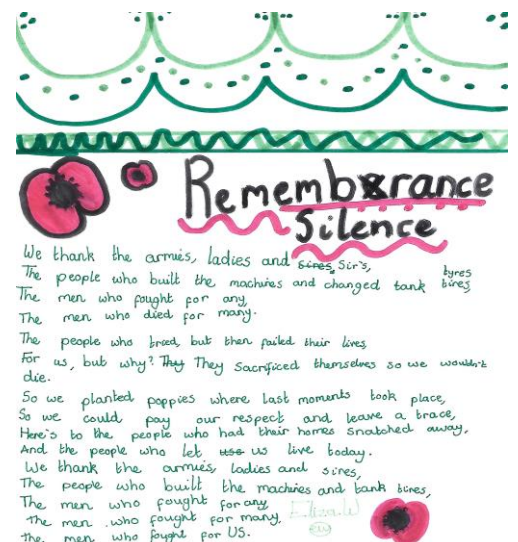 Remembrance
Silence
We thank the armies, ladies and sires, Sir's,
The people who built the machines and changed tank tyres bires,
The men who fought for any,
The men who died for many.
The people who tried, but then failed their lives
For us, but why? They They Sacrificed themselves so we wouldn't
die.
So we planted poppies where last moments took place,
So we could pay our respect and leave a trace,
Here's to the people who had their homes snatched away,
And the people who let use us live today.
We thank the armies, ladies and sires,
The people who built the machines and tank tires,
The men who fought for any
The men who fought for many,
The men who fought for US.